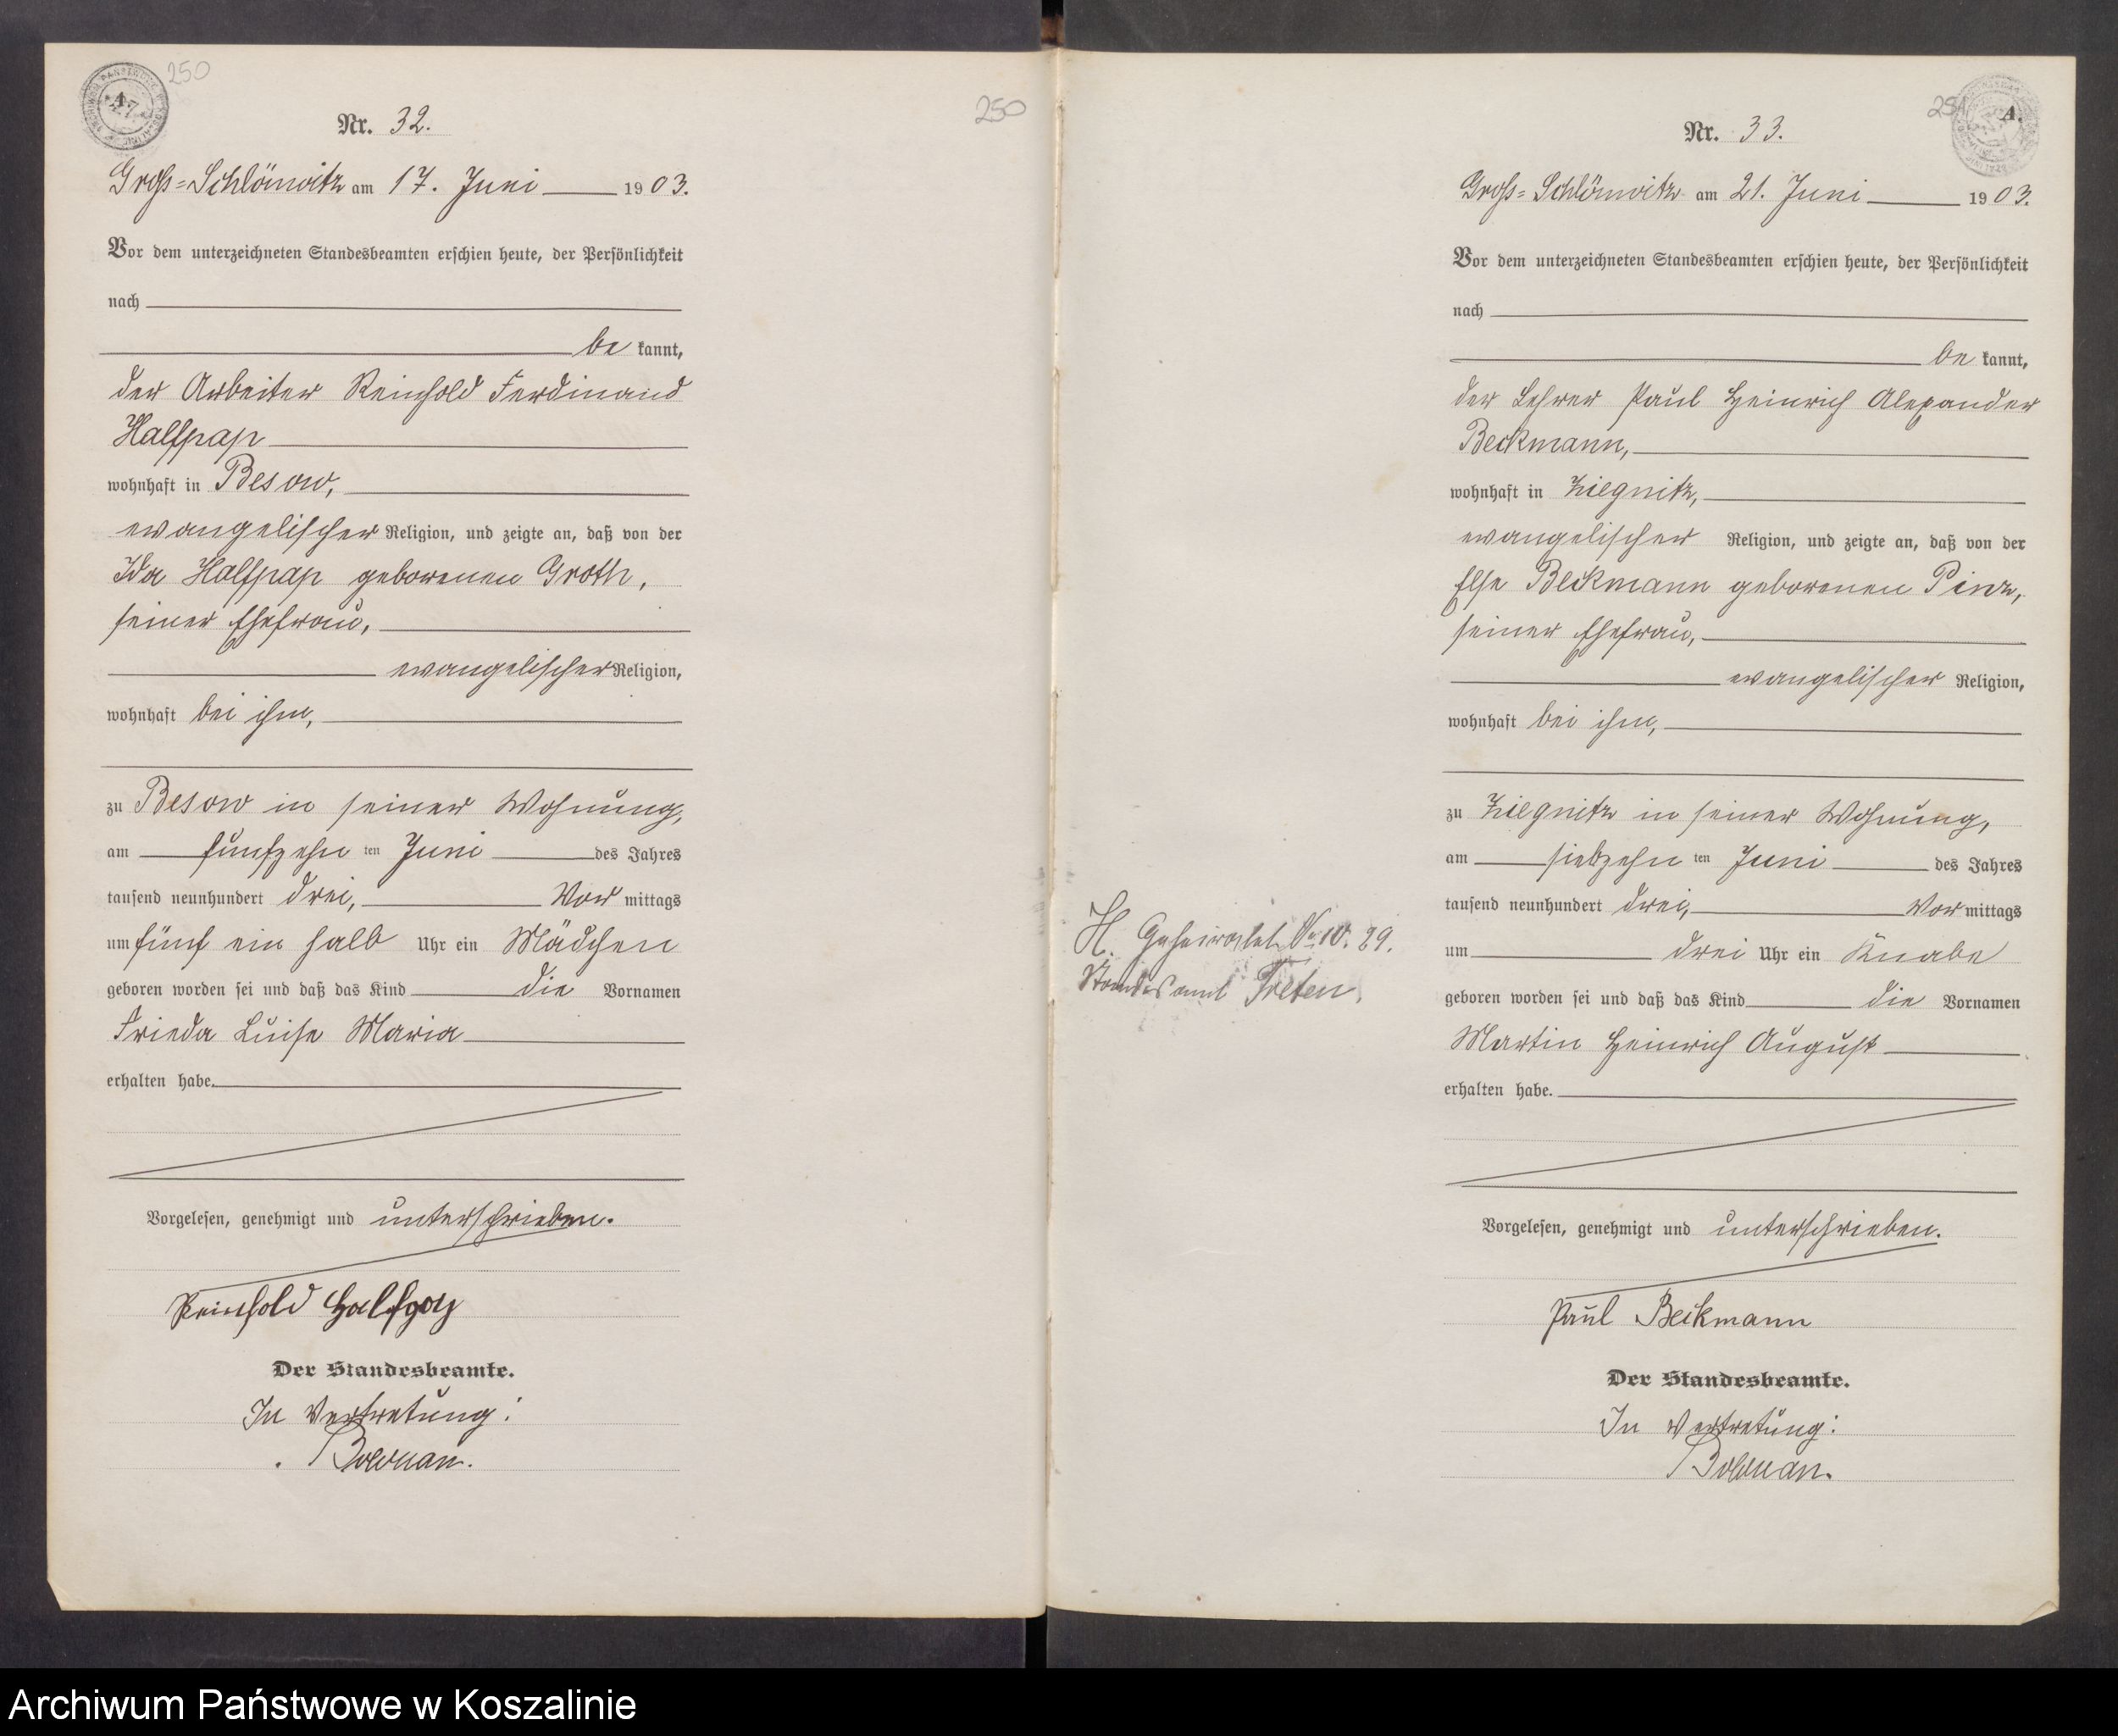 250
A.
Nr. 32.
Groß=Schlönwitz am 17. Juni 1903.
Vor dem unterzeichneten Standesbeamten erschien heute, der Persönlichkeit
nach
be kannt,
der Arbeiter Reinhold Ferdinand
Halfpap
wohnhaft in Besow,
evangelischer Religion, und zeigte an, daß von der
Ida Halfpap geborenen Groth,
seiner Ehefrau,
evangelischer Religion,
wohnhaft bei ihm,
zu Besow in seiner Wohnung,
am fünfzehn ten Juni des Jahres
tausend neunhundert drei, Vor mittags
um fünf ein halb Uhr ein Mädchen
geboren worden sei und daß das Kind die Vornamen
Frieda Luise Maria
erhalten habe.
Vorgelesen, genehmigt und unterschrieben.
Reinhold Halfpap
Der Standesbeamte.
In Vertretung:
250
251
A.
Nr. 33.
Groß=Schlönwitz am 21. Juni 1903.
Vor dem unterzeichneten Standesbeamten erschien heute, der Persönlichkeit
nach
be kannt,
der Lehrer Paul Heinrich Alexander
Beckmann,
wohnhaft in Ziegnitz,
evangelischer Religion, und zeigte an, daß von der
Else Beckmann geborenen Pinz,
seiner Ehefrau,
evangelischer Religion,
wohnhaft bei ihm,
zu Ziegnitz in seiner Wohnung,
am siebzehn ten Juni des Jahres
tausend neunhundert drei, Vor mittags
um drei Uhr ein Knabe
geboren worden sei und daß das Kind die Vornamen
Martin Heinrich August
erhalten habe.
Vorgelesen, genehmigt und unterschrieben.
Paul Beckmann
Der Standesbeamte.
In Vertretung:
H. Geheiratet Nr. 10. 29.
Standesamt Treten.
Archiwum Państwowe w Koszalinie